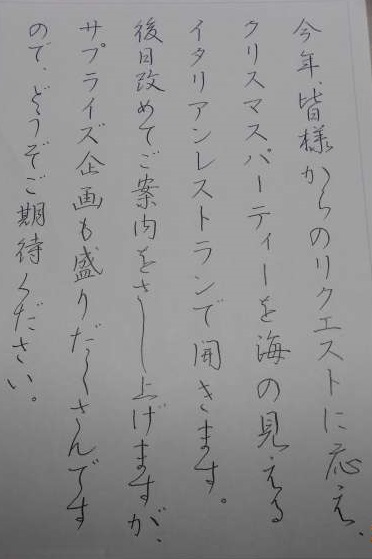 今年、皆様からのリクエストに応え、
クリスマスパーティーを海の見える
イタリアンレストランで開きます。
後日改めてご案内をさし上げますが、
サプライズ企画も盛りだくさんです
ので、どうぞご期待ください。